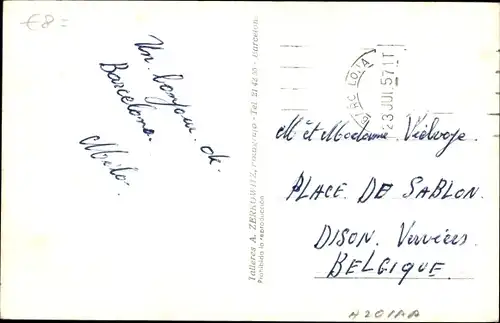 €8=
Un bonjour de
Barcelona.
Milo.
Talleres A. ZERKOWITZ, Fotógrafo - Tel. 21 42 30 - Barcelona
Prohibida la reproducción
BARCELONA
23 JUL 57 11
M et Madame
PLACE. DE SABLON.
DISON. Verviers
BELGIQUE.
A201AA